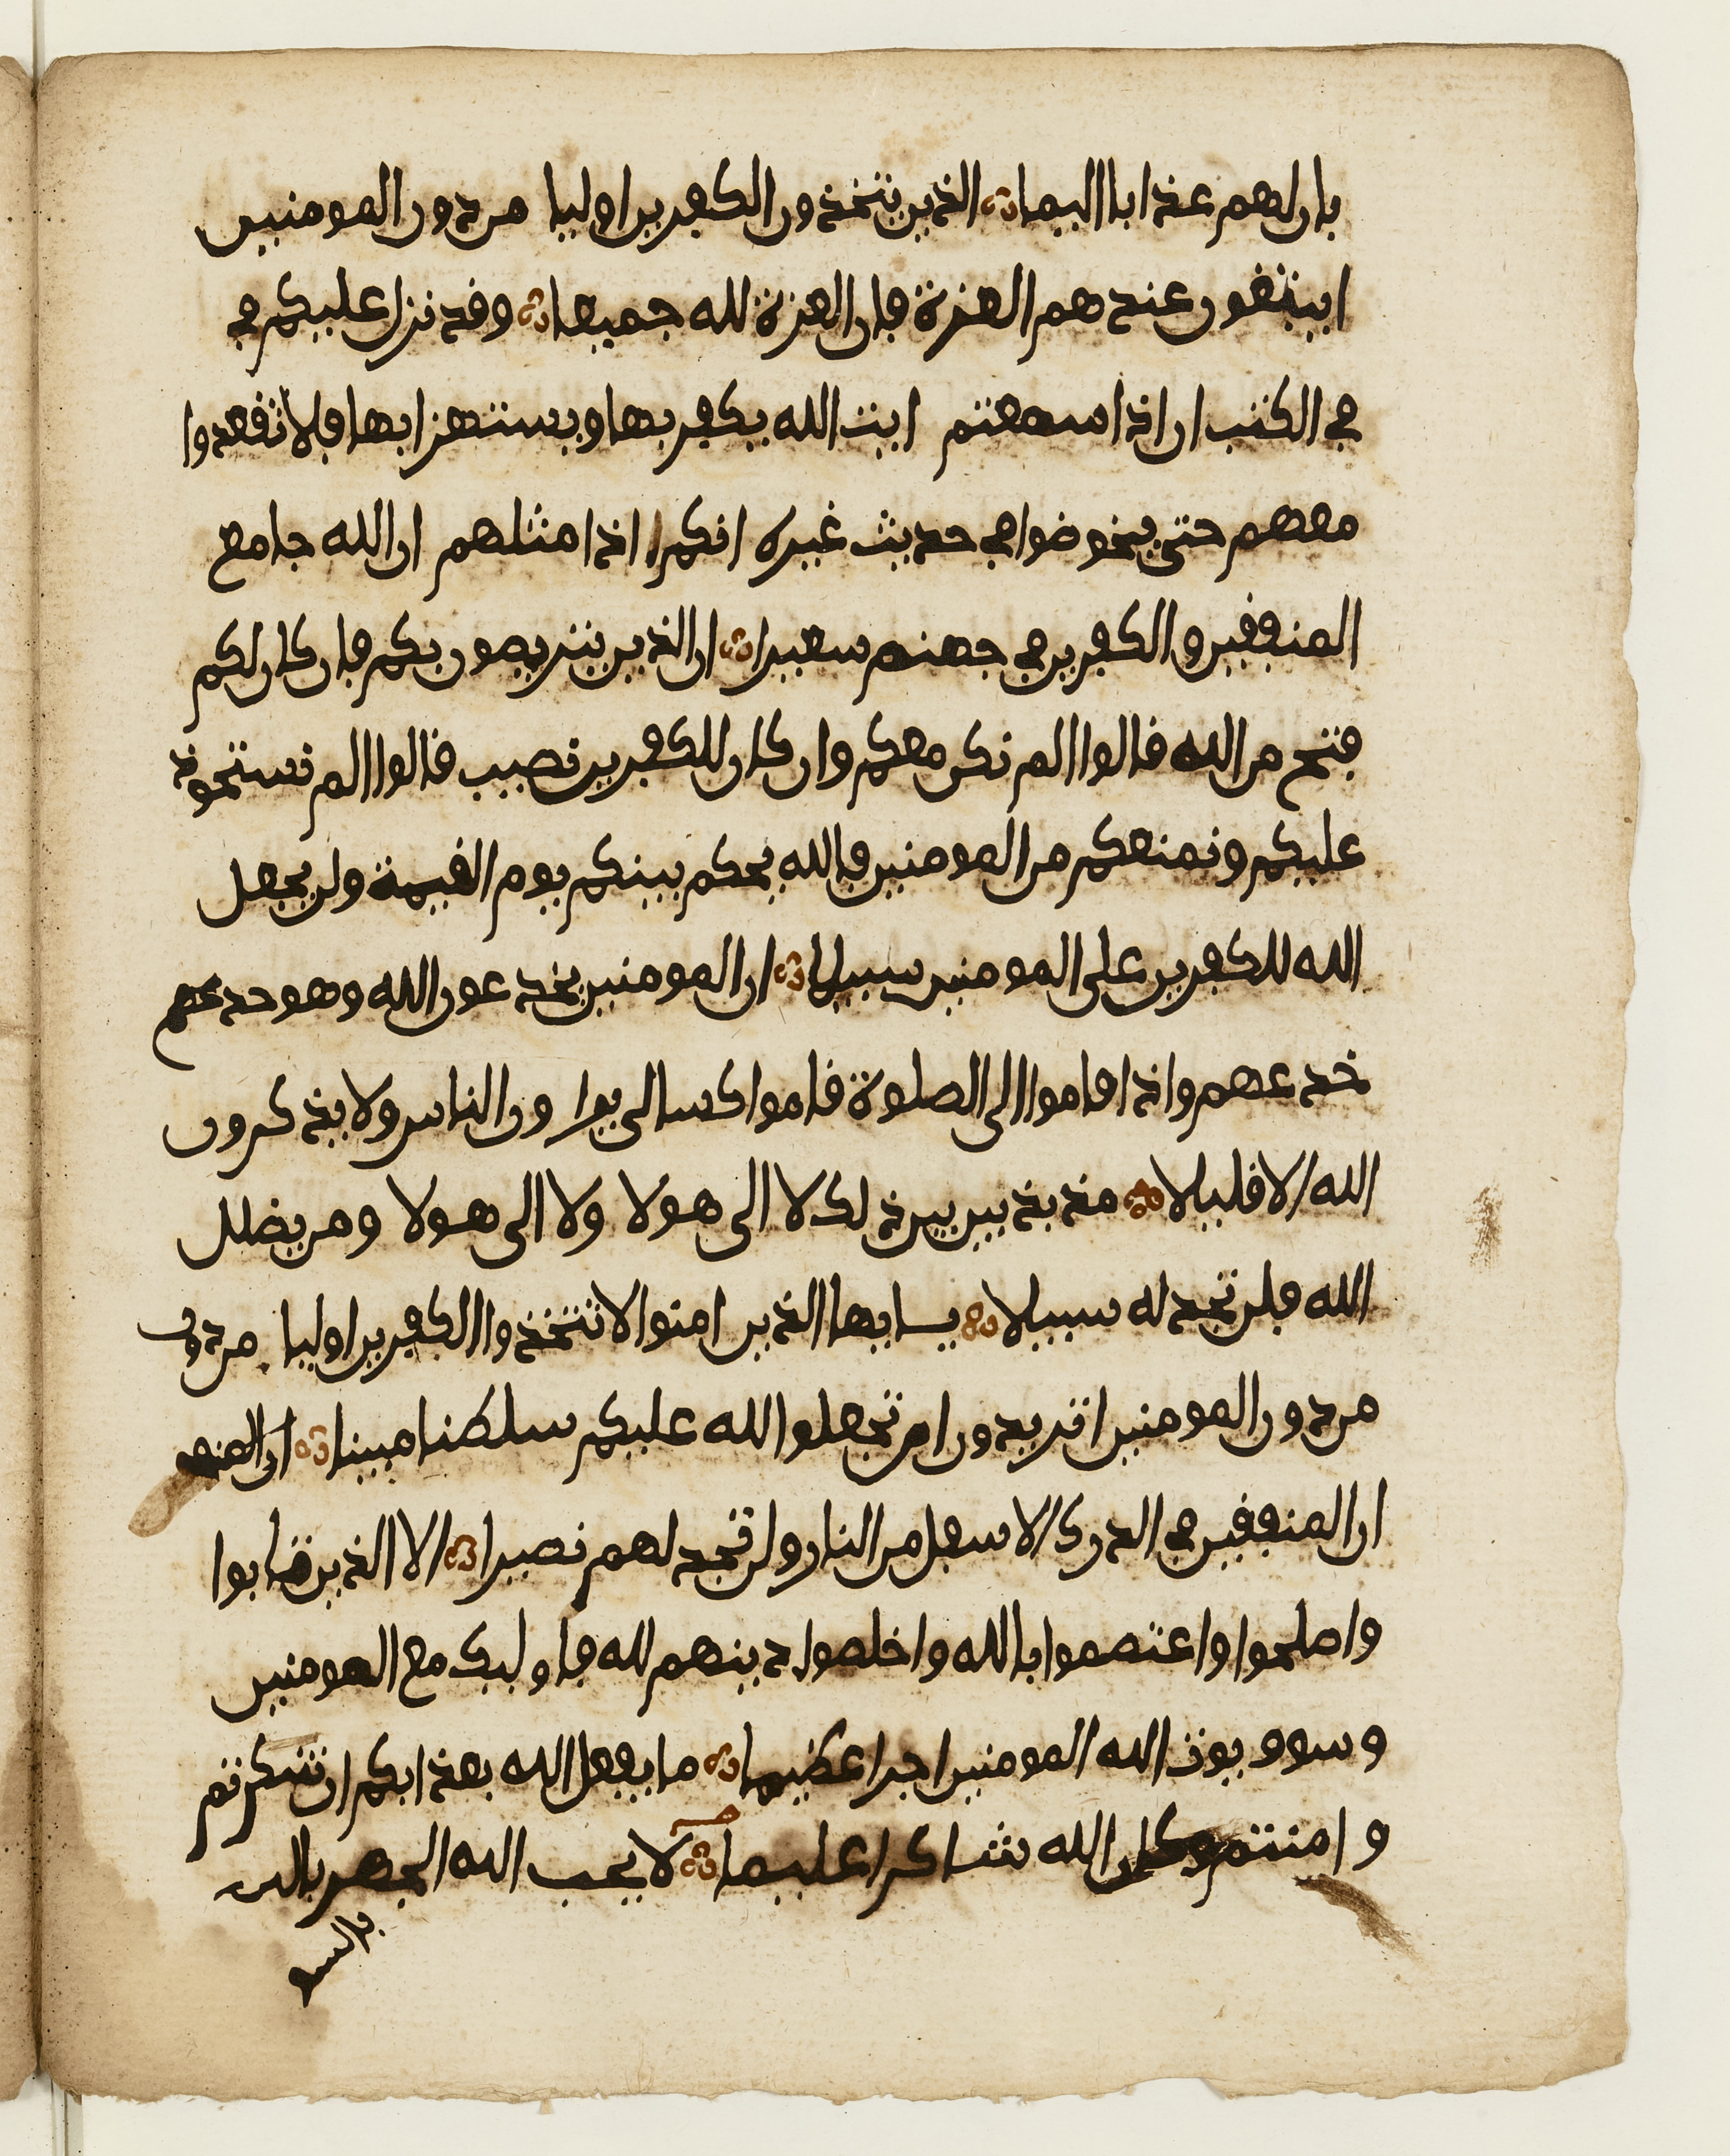 بان لهم عذابا اليما الذين يتخذون الكفرين اوليا من دون المومنين
ايبتغون عندهم العزة فان العزة لله جميعا وقد نزل عليكم في
في الكتب ان اذا سمعتم ايت الله يكفر بها ويستهزا بها فلا تقعدوا
معهم حتى يخوضوا في حديث غيره انكم اذا مثلهم ان الله جامع
المنفقين والكفرين في جهنم سعيرا ان الذين يتربصون بكم فان كان لكم
فتح من الله قالوا الم نكن معكم وان كان للكفرين نصيب قالوا الم نستحوذ
عليكم ونمنعكم من المومنين فالله يحكم بينكم يوم القيمة ولن يجعل
الله للكفرين على المومنين سبيلا ان المومنين يخدعون الله وهو خدعهم
خدعهم واذا قاموا الى الصلوة قاموا كسالى يراون الناس ولا يذكرون
الله الا قليلا مذبذبين بين ذلك لا الى هولا ولا الى هولا ومن يضلل
الله فلن تجد له سبيلا يايها الذين امنوا لا تتخذوا الكفرين اوليا من دون
من دون المومنين اتريدون ان تجعلوا الله عليكم سلطنا مبينا ان المنف
ان المنفقين في الدرك الاسفل من النار ولن تجد لهم نصيرا الا الذين تابوا
واصلحوا واعتصموا بالله واخلصوا دينهم لله فاوليك مع المومنين
وسوف يوت الله المومنين اجرا عظيما ما يفعل الله بعذابكم ان شكرتم
وامنتم وكان الله شاكرا عليما لا يحب الله الجهر بالس
بالسو